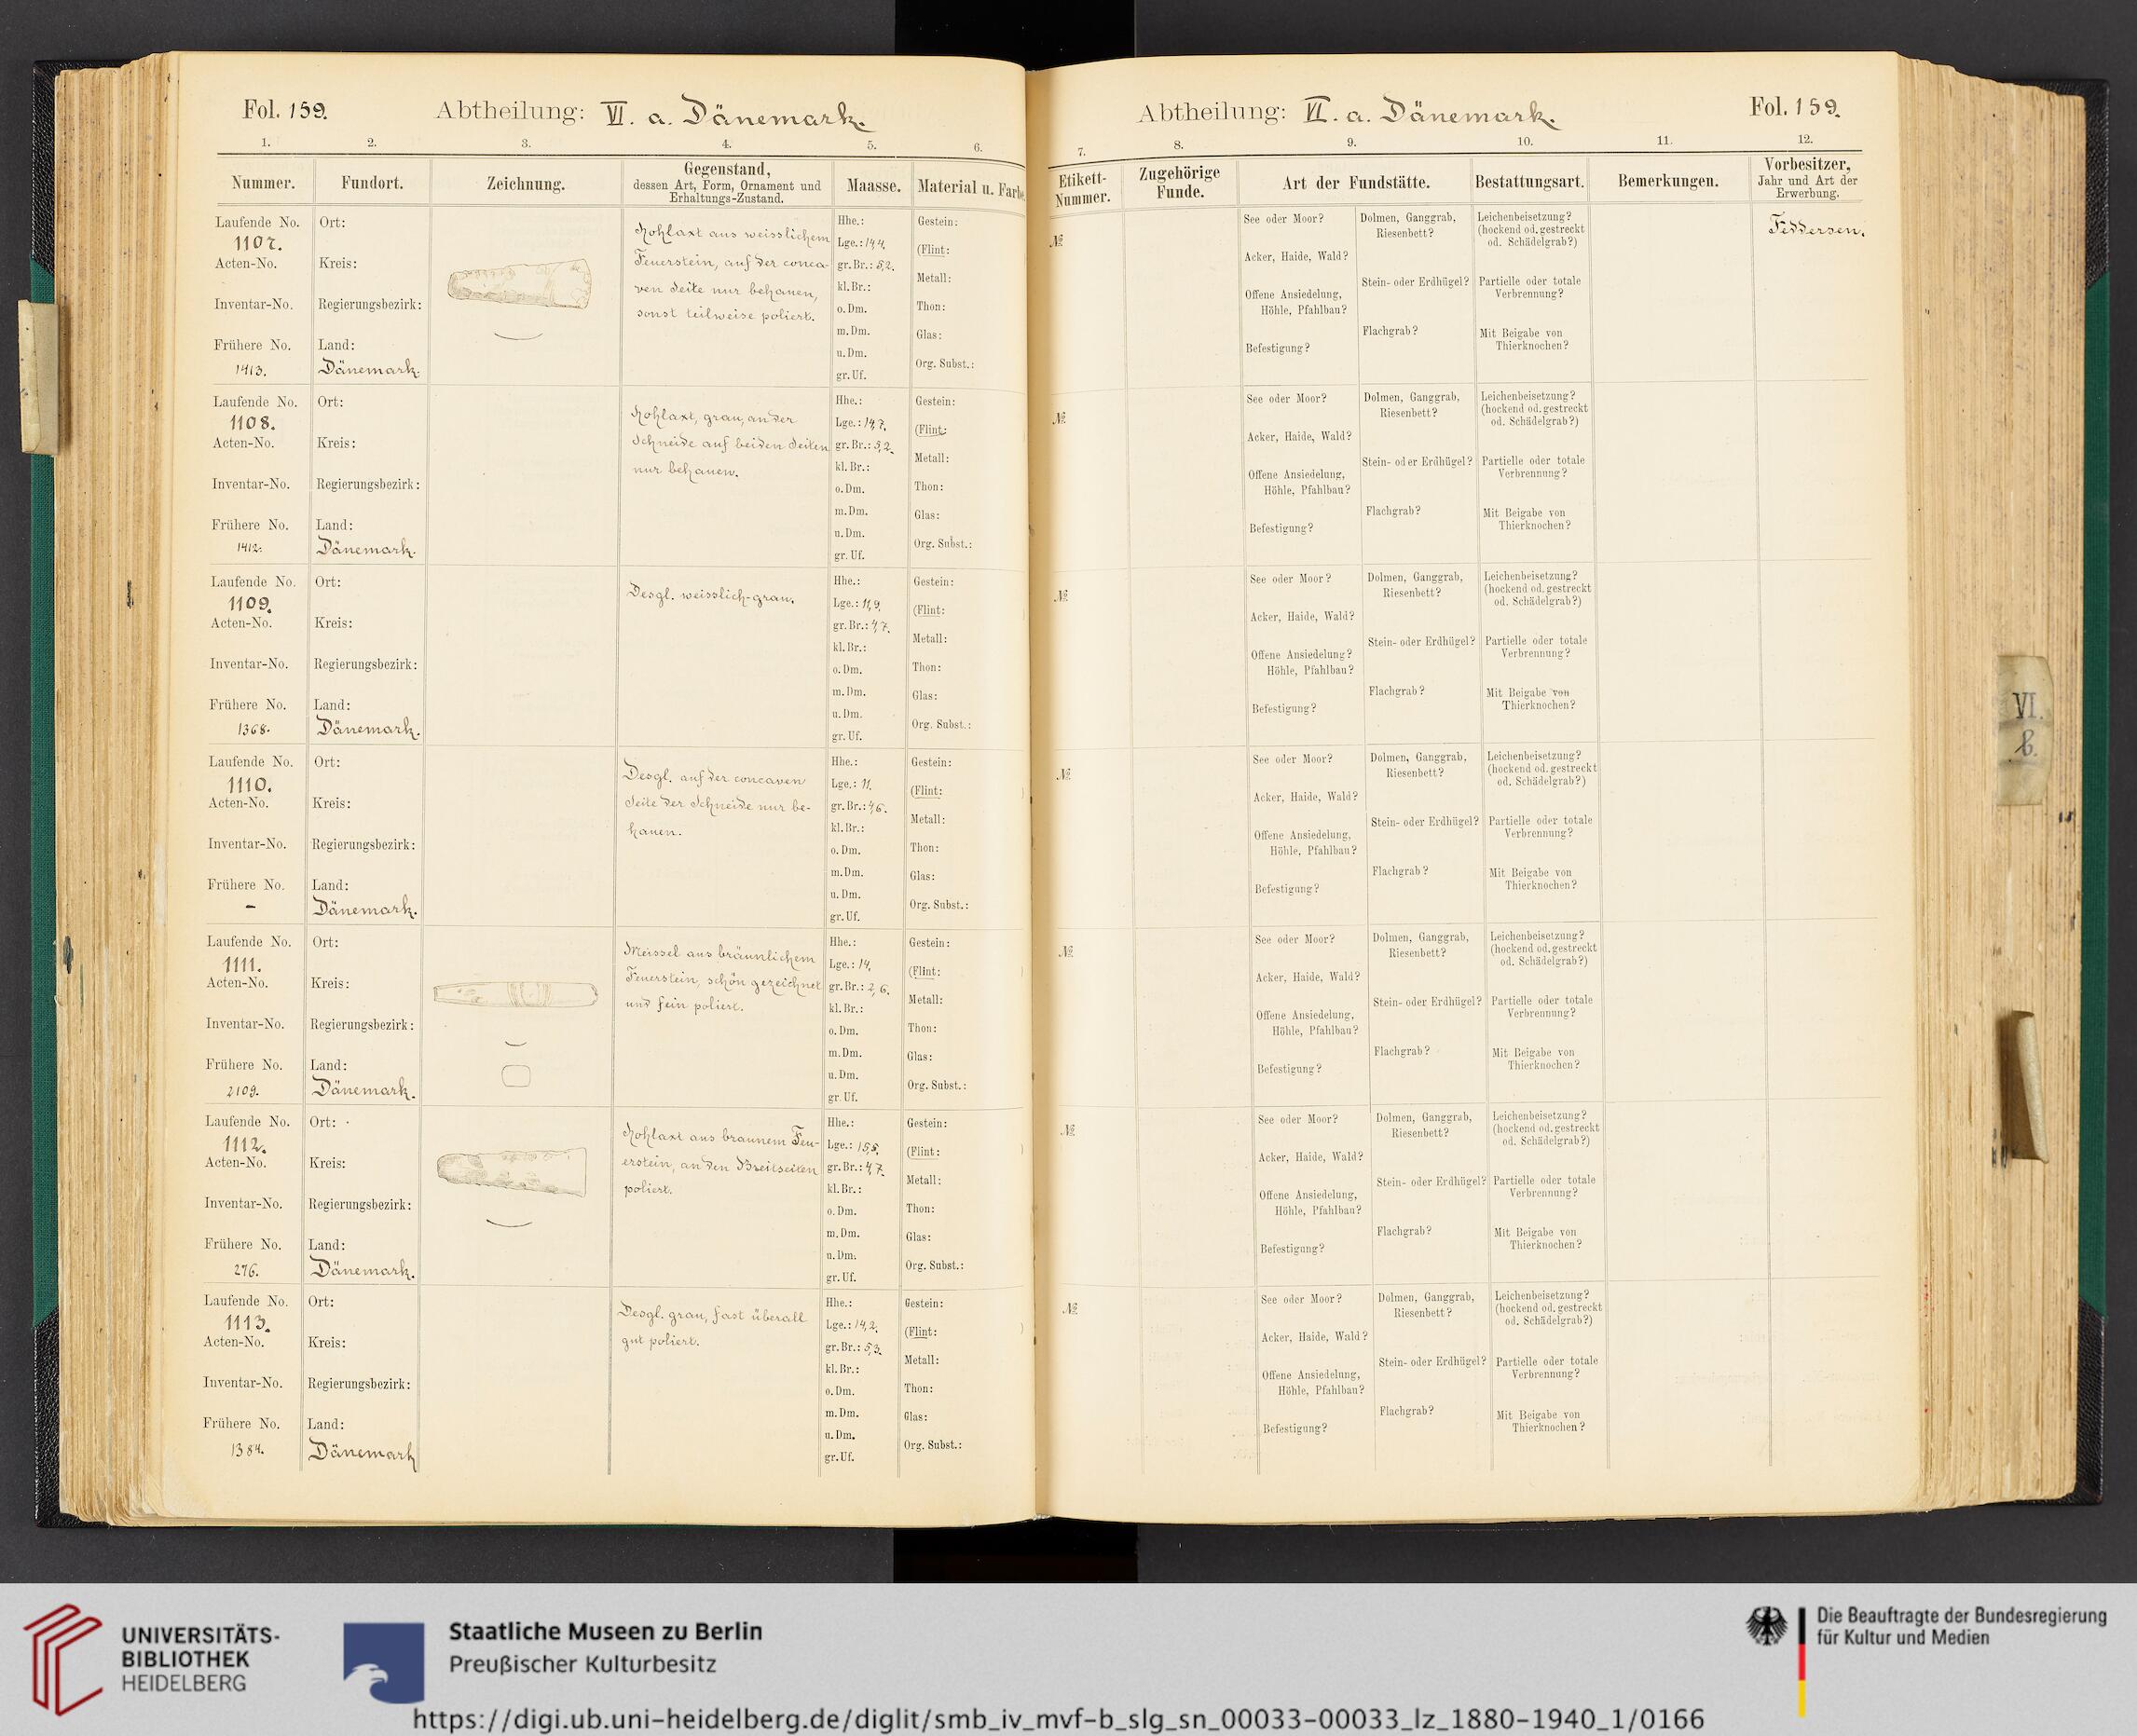 Fol. 159.
Abtheilung: VI. a. Dänemark.
1. 2. 3. 4. 5. 6.
Nummer. Fundort. Zeichnung. Gegenstand, dessen Art, Form, Ornament und Erhaltungs-Zustand. Maasse. Material u. Farbe.
Laufende No.
1107.
Acten-No.
Inventar-No.
Frühere No.
1413.
Ort:
Kreis:
Regierungsbezirk:
Land:
Dänemark.
Hohlaxt aus weisslichem
Feuerstein, auf der conca-
ven Seite nur behauen,
sonst teilweise poliert.
Hhe.:
Lge.: 14,4.
gr. Br.: 5,2.
kl. Br.:
o. Dm.
m. Dm.
u. Dm.
gr. Uf.
Gestein:
(Flint:
Metall:
Thon:
Glas:
Org. Subst.:
Laufende No.
1108.
Acten-No.
Inventar-No.
Frühere No.
1412.
Ort:
Kreis:
Regierungsbezirk:
Land:
Dänemark.
Hohlaxt, grau, an der
Schneide auf beiden Seiten
nur behauen.
Hhe.:
Lge.: 14,7.
gr. Br.: 5,2.
kl. Br.:
o. Dm.
m. Dm.
u. Dm.
gr. Uf.
Gestein:
(Flint:
Metall:
Thon:
Glas:
Org. Subst.:
Laufende No.
1109.
Acten-No.
Inventar-No.
Frühere No.
1368.
Ort:
Kreis:
Regierungsbezirk:
Land:
Dänemark.
Desgl. weisslich-grau.
Hhe.:
Lge.: 11,9.
gr. Br.: 4,7.
kl. Br.:
o. Dm.
m. Dm.
u. Dm.
gr. Uf.
Gestein:
(Flint: )
Metall:
Thon:
Glas:
Org. Subst.:
Laufende No.
1110.
Acten-No.
Inventar-No.
Frühere No.
–
Ort:
Kreis:
Regierungsbezirk:
Land:
Dänemark.
Desgl. auf der concaven
Seite der Schneide nur be-
hauen.
Hhe.:
Lge.: 11.
gr. Br.: 4,6.
kl. Br.:
o. Dm.
m. Dm.
u. Dm.
gr. Uf.
Gestein:
(Flint: )
Metall:
Thon:
Glas:
Org. Subst.:
Laufende No.
1111.
Acten-No.
Inventar-No.
Frühere No.
2109.
Ort:
Kreis:
Regierungsbezirk:
Land:
Dänemark.
Meissel aus bräunlichem
Feuerstein, schön gezeichnet
und fein poliert.
Hhe.:
Lge.: 14.
gr. Br.: 2,6.
kl. Br.:
o. Dm.
m. Dm.
u. Dm.
gr. Uf.
Gestein:
(Flint: )
Metall:
Thon:
Glas:
Org. Subst.:
Laufende No.
1112.
Acten-No.
Inventar-No.
Frühere No.
276.
Ort:
Kreis:
Regierungsbezirk:
Land:
Dänemark.
Hohlaxt aus braunem Feu-
erstein, an den Breitseiten
poliert.
Hhe.:
Lge.: 15,5.
gr. Br.: 4,7.
kl. Br.:
o. Dm.
m. Dm.
u. Dm.
gr. Uf.
Gestein:
(Flint: )
Metall:
Thon:
Glas:
Org. Subst.:
Laufende No.
1113.
Acten-No.
Inventar-No.
Frühere No.
1384.
Ort:
Kreis:
Regierungsbezirk:
Land:
Dänemark
Desgl. grau, fast überall
gut poliert.
Hhe.:
Lge.: 14,2.
gr. Br.: 5,3.
kl. Br.:
o. Dm.
m. Dm.
u. Dm.
gr. Uf.
Gestein:
(Flint: )
Metall:
Thon:
Glas:
Org. Subst.:
Abtheilung: VI. a. Dänemark.
Fol. 159.
7. 8. 9. 10. 11. 12.
Etikett-Nummer. Zugehörige Funde. Art der Fundstätte. Bestattungsart. Bemerkungen. Vorbesitzer, Jahr und Art der Erwerbung.
№
See oder Moor?
Acker, Haide, Wald?
Offene Ansiedelung,
Höhle, Pfahlbau?
Befestigung?
Dolmen, Ganggrab,
Riesenbett?
Stein- oder Erdhügel?
Flachgrab?
Leichenbeisetzung?
(hockend od. gestreckt
od. Schädelgrab?)
Partielle oder totale
Verbrennung?
Mit Beigabe von
Thierknochen?
Feddersen.
№
See oder Moor?
Acker, Haide, Wald?
Offene Ansiedelung,
Höhle, Pfahlbau?
Befestigung?
Dolmen, Ganggrab,
Riesenbett?
Stein- oder Erdhügel?
Flachgrab?
Leichenbeisetzung?
(hockend od. gestreckt
od. Schädelgrab?)
Partielle oder totale
Verbrennung?
Mit Beigabe von
Thierknochen?
№
See oder Moor?
Acker, Haide, Wald?
Offene Ansiedelung?
Höhle, Pfahlbau?
Befestigung?
Dolmen, Ganggrab,
Riesenbett?
Stein- oder Erdhügel?
Flachgrab?
Leichenbeisetzung?
(hockend od. gestreckt
od. Schädelgrab?)
Partielle oder totale
Verbrennung?
Mit Beigabe von
Thierknochen?
№
See oder Moor?
Acker, Haide, Wald?
Offene Ansiedelung,
Höhle, Pfahlbau?
Befestigung?
Dolmen, Ganggrab,
Riesenbett?
Stein- oder Erdhügel?
Flachgrab?
Leichenbeisetzung?
(hockend od. gestreckt
od. Schädelgrab?)
Partielle oder totale
Verbrennung?
Mit Beigabe von
Thierknochen?
№
See oder Moor?
Acker, Haide, Wald?
Offene Ansiedelung,
Höhle, Pfahlbau?
Befestigung?
Dolmen, Ganggrab,
Riesenbett?
Stein- oder Erdhügel?
Flachgrab?
Leichenbeisetzung?
(hockend od. gestreckt
od. Schädelgrab?)
Partielle oder totale
Verbrennung?
Mit Beigabe von
Thierknochen?
№
See oder Moor?
Acker, Haide, Wald?
Offene Ansiedelung,
Höhle, Pfahlbau?
Befestigung?
Dolmen, Ganggrab,
Riesenbett?
Stein- oder Erdhügel?
Flachgrab?
Leichenbeisetzung?
(hockend od. gestreckt
od. Schädelgrab?)
Partielle oder totale
Verbrennung?
Mit Beigabe von
Thierknochen?
№
See oder Moor?
Acker, Haide, Wald?
Offene Ansiedelung,
Höhle, Pfahlbau?
Befestigung?
Dolmen, Ganggrab,
Riesenbett?
Stein- oder Erdhügel?
Flachgrab?
Leichenbeisetzung?
(hockend od. gestreckt
od. Schädelgrab?)
Partielle oder totale
Verbrennung?
Mit Beigabe von
Thierknochen?
VI.
b.
UNIVERSITÄTS-
BIBLIOTHEK
HEIDELBERG
Staatliche Museen zu Berlin
Preußischer Kulturbesitz
Die Beauftragte der Bundesregierung
für Kultur und Medien
https://digi.ub.uni-heidelberg.de/diglit/smb_iv_mvf-b_slg_sn_00033-00033_lz_1880-1940_1/0166